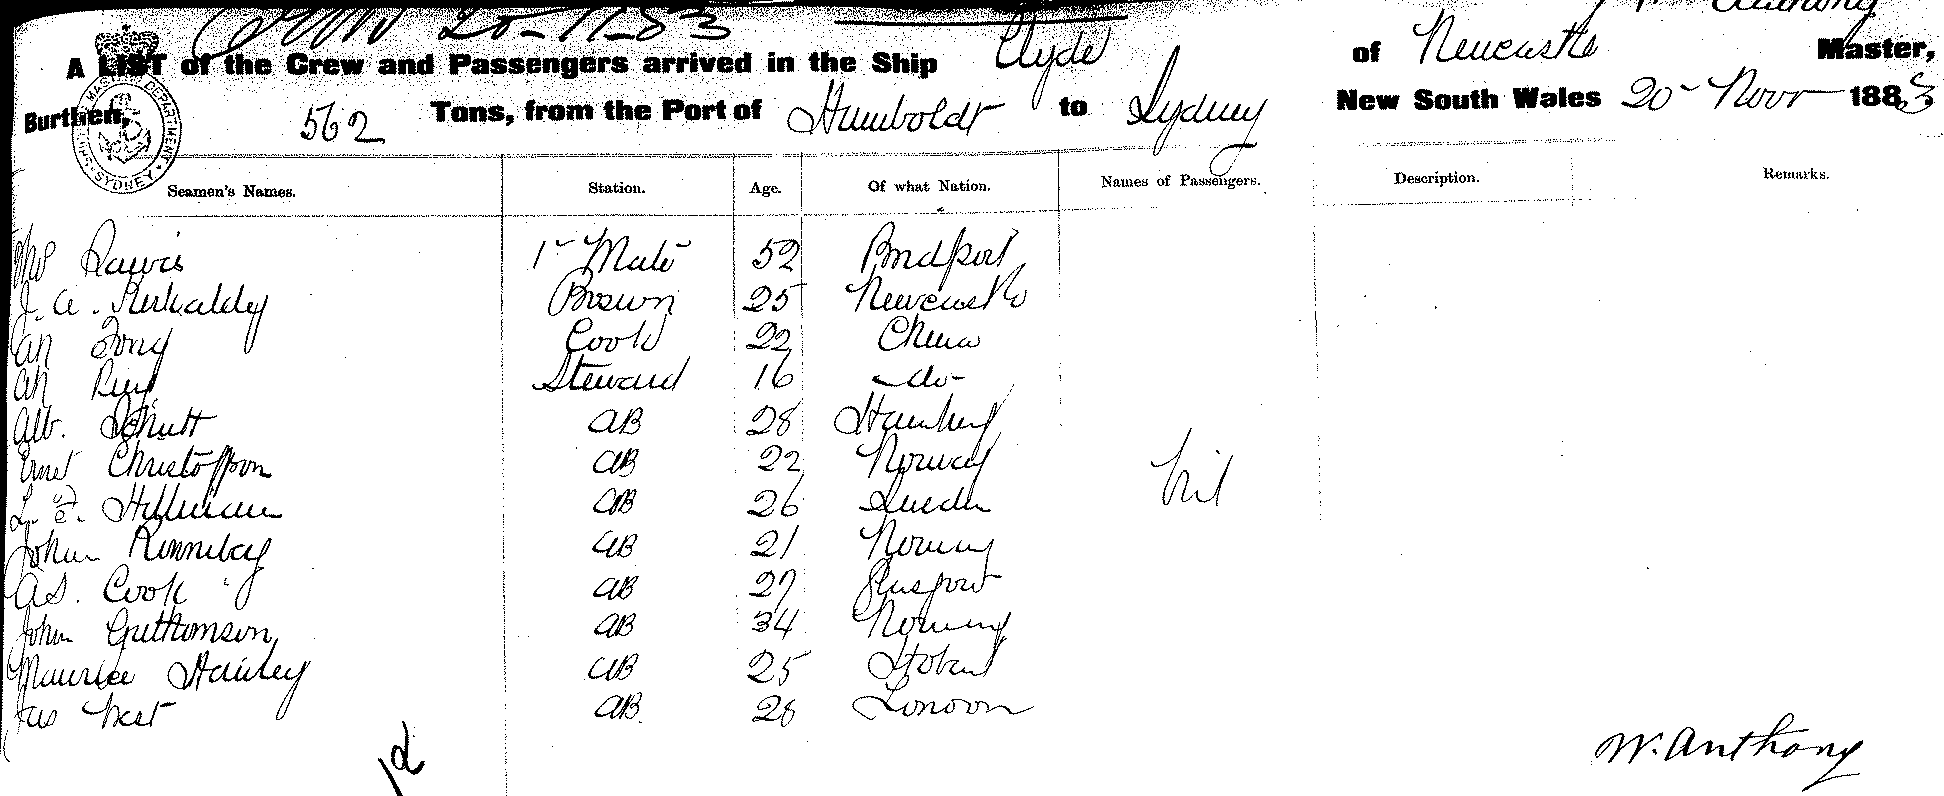 20-11-83
Anthony
A LIST of the Crew and Passengers arrived in the Ship Clyde of Newcastle Master,
Burthen, 562 Tons, from the Port of Humboldt to Sydney New South Wales 20 Novr 1883
SHIPPING MASTERS DEPARTMENT SYDNEY
Seamen's Names. Station. Age. Of what Nation. Names of Passengers. Description. Remarks.
1 Mate 52 Bridport
J. A. Kirkaldy Bosun 25 Newcastle
Ah Fong Cook 22 China
Ah Steward 16 -do-
Alb. Schutt AB 28 Hamburg
Ernst Christoffson AB 22 Norway
L. F. Hillman AB 26 Sweden
nil
Johan AB 21 Norway
A.S. Cook AB 27 Gusport
John AB 34 Norway
Maurice Hanley AB 25 Hobart
Jas West AB 28 London
12
W. Anthony